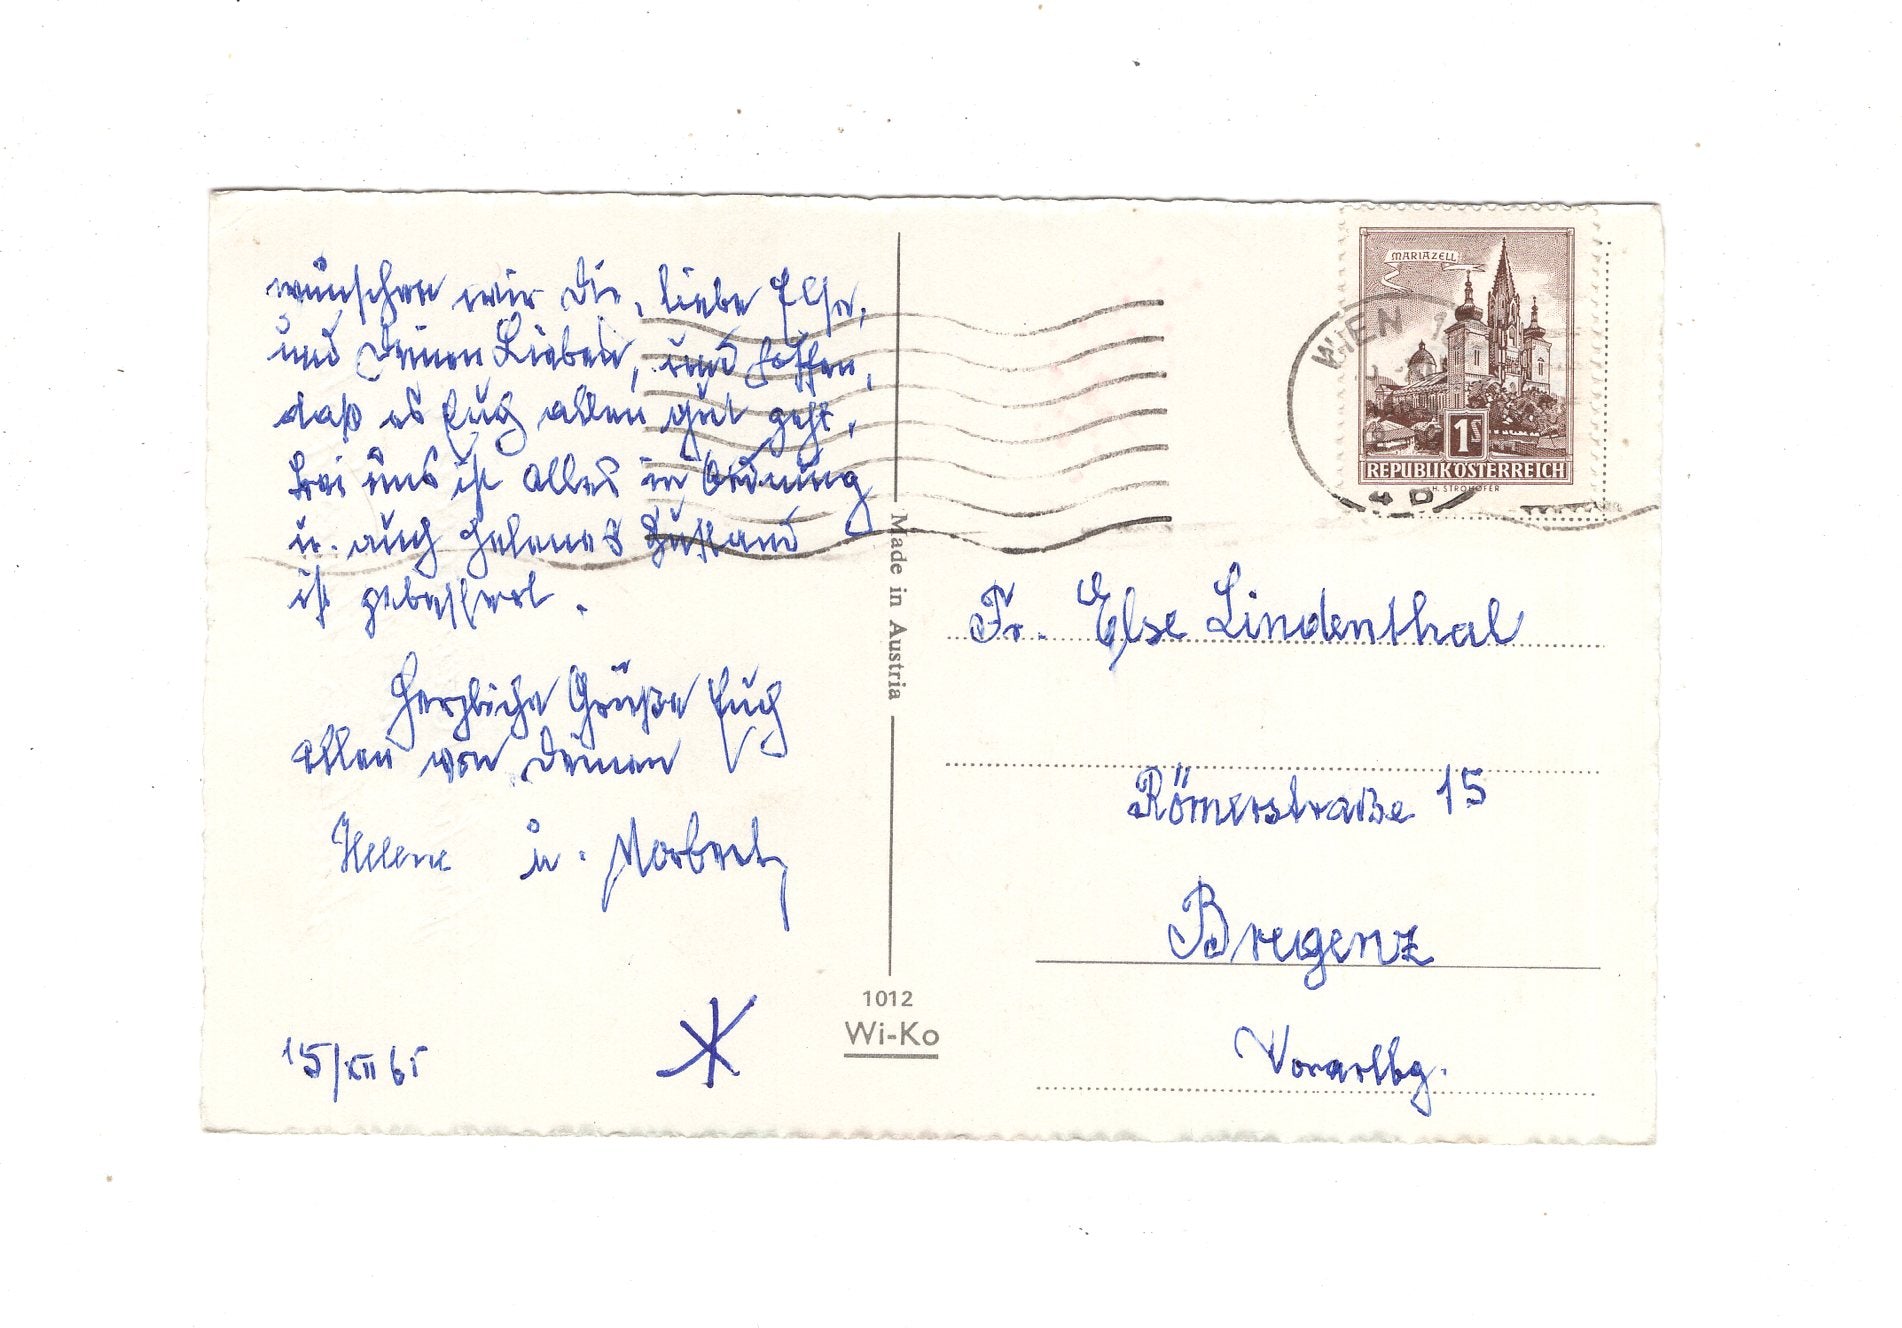 wünschen wir Dir, liebe Else,
und Deinen Lieben, und hoffen,
daß es Euch allen gut geht,
bei uns ist alles in Ordnung
u. auch Helenes Zustand
ist gebessert.
Herzliche Grüße Euch
allen von Deinen
Helene u.
15/XII 65
Made in Austria
1012
Wi-Ko
MARIAZELL
WIEN 1
1S
REPUBLIK ÖSTERREICH
H. STROHOFER
4D
Fr. Else Lindenthal
Römerstraße 15
Bregenz
Vorarlbg.